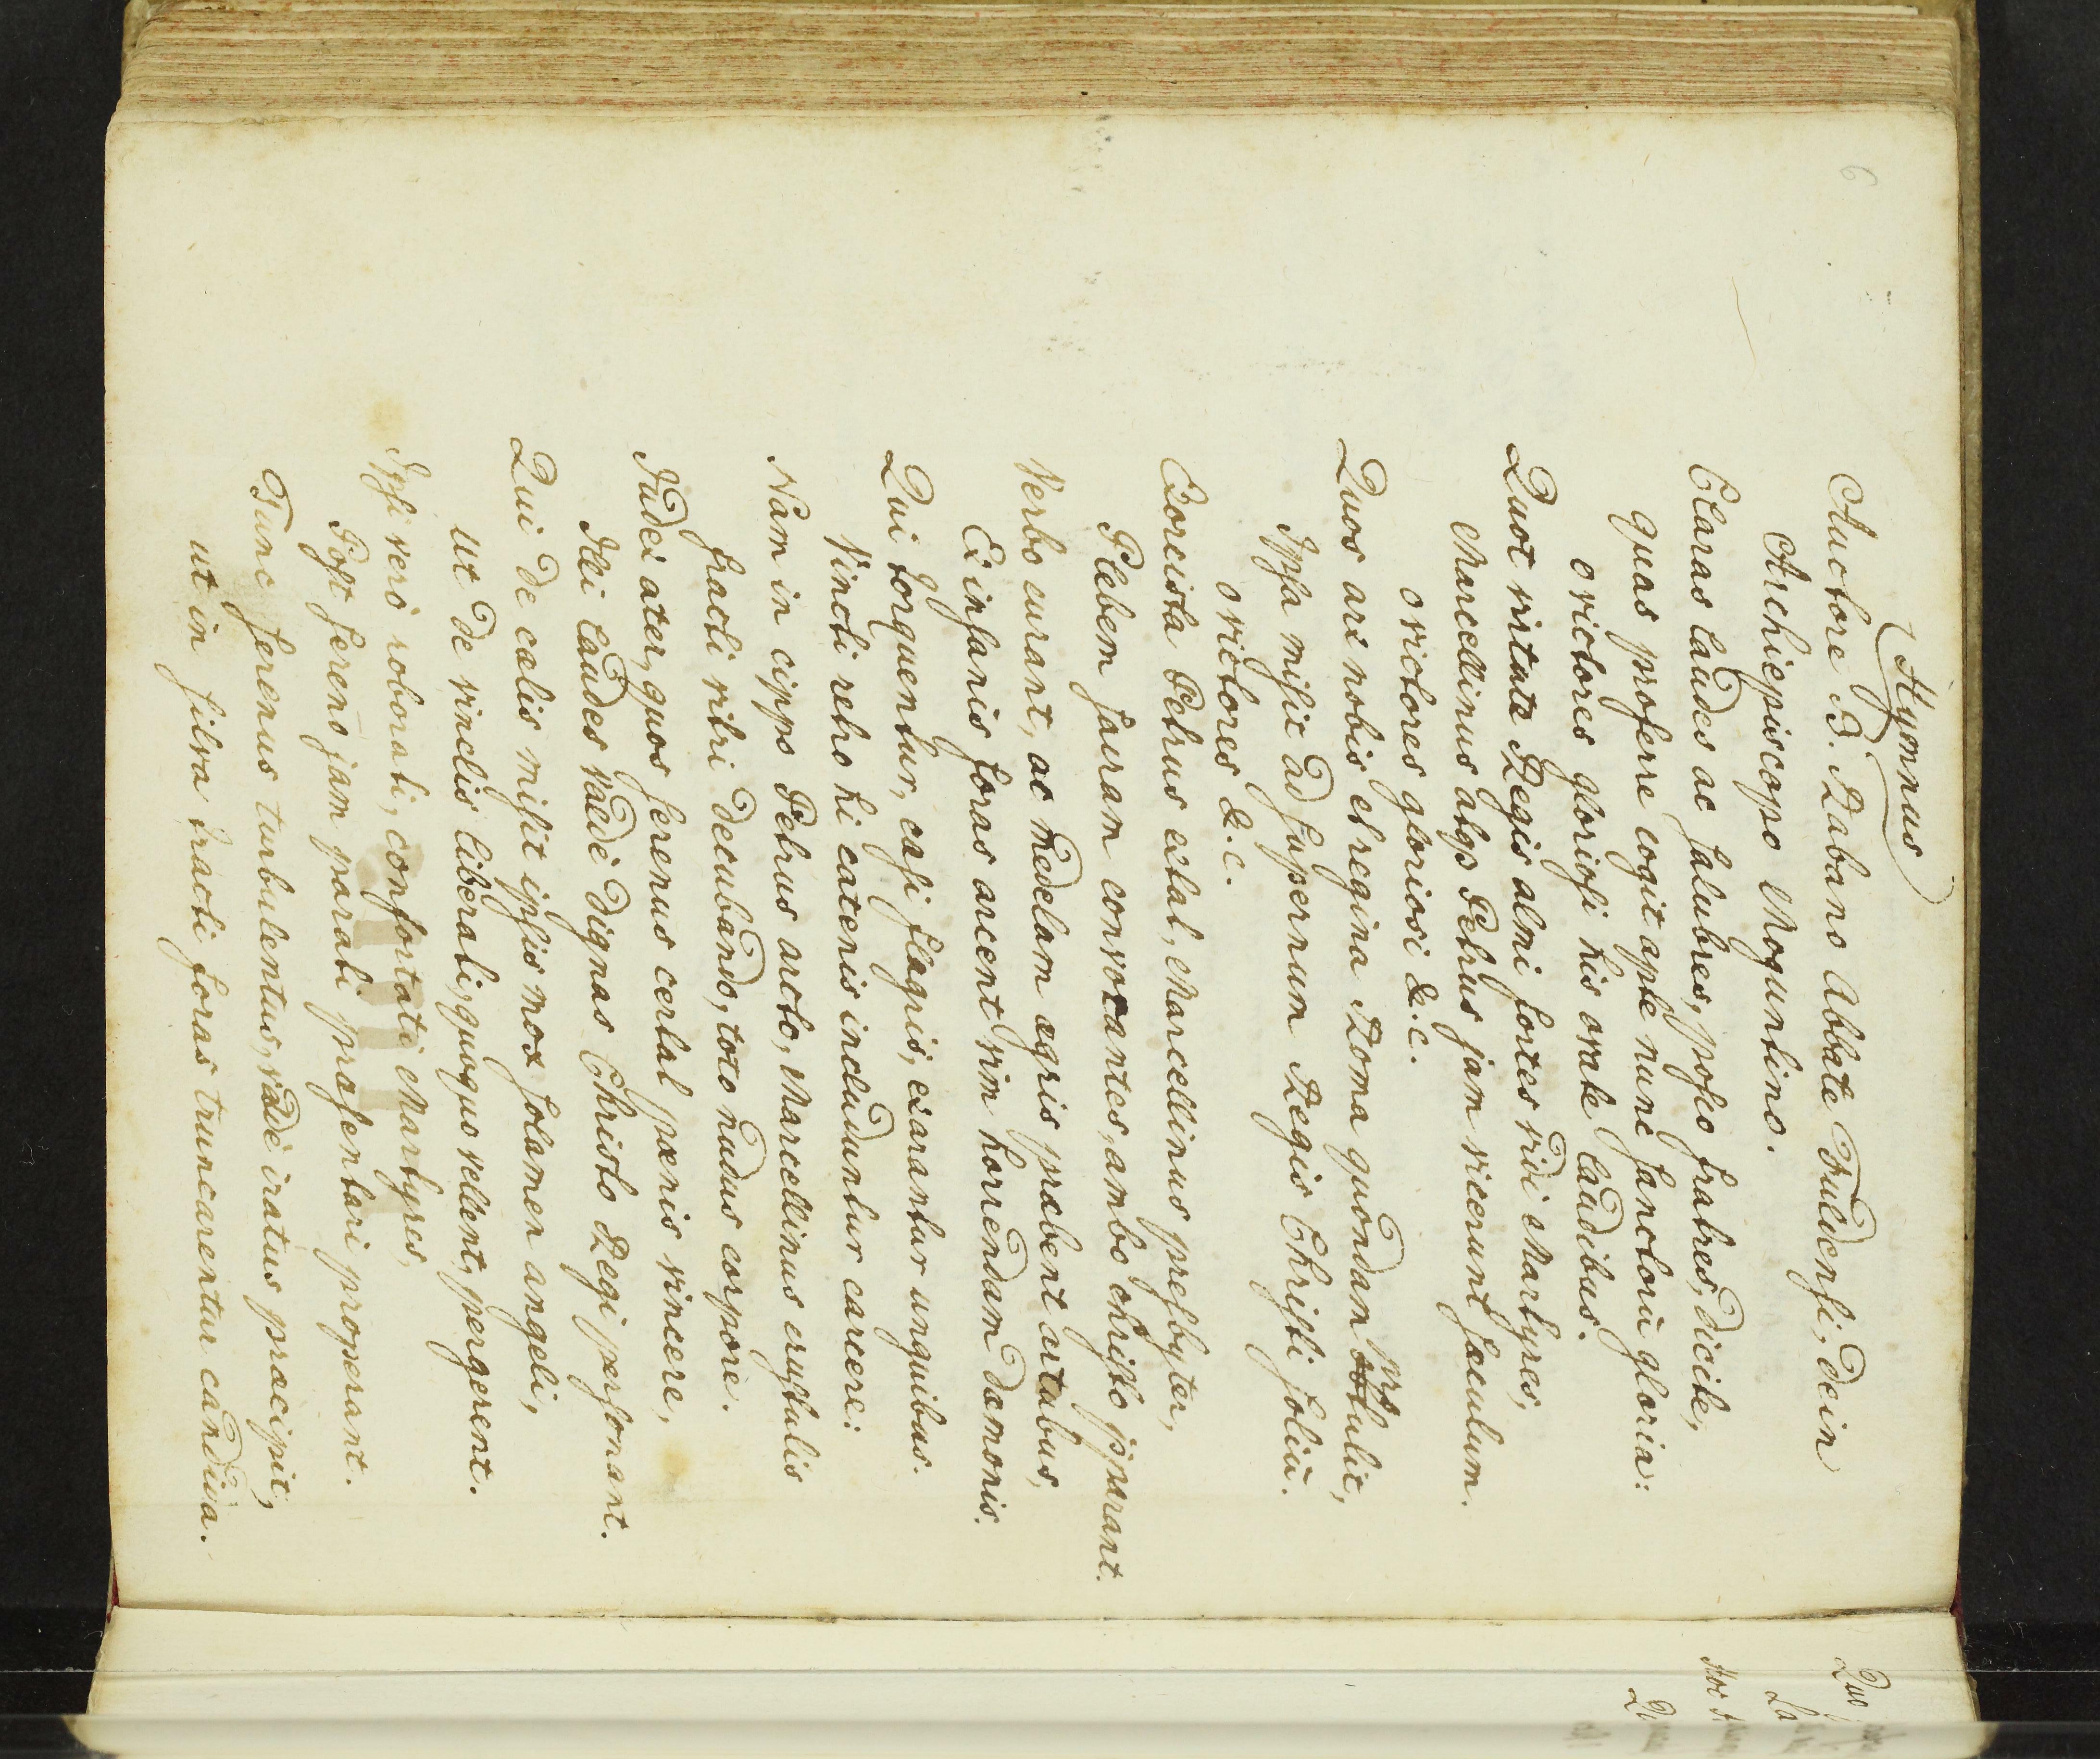 6
Hymnus
Auctore B. Rabano Abbate Fuldensi, dein
Archiepiscopo Moguntino.
Claras laudes ac salubres, posco fratres, dicite,
quas proferre cogit apte nunc sanctorū gloria:
o victores gloriosi his ovate laudibus.
Quot virtute Regis almi fortes vidi Martyres,
Marcellinus atqs Petrus jam vicerunt sæculum.
o victores gloriosi &.c.
Quos arx nobis et regina Roma quondam protulit,
Ipsa misit ad supernum Regis Christi soliū.
o victores &.c.
Exorcista Petrus extat, Marcellinus presbyter,
Plebem sacram convocantes, ambo christo pparant.
Verbo curant, ac medelam ægris præbent artubus,
Ex insanis foras arcent vim horrendam dæmonis.
Qui torquentur, cæsi flagris, exarantur unguibus.
Vincti retro hi catenis includuntur carcere:
Nam in cippo Petrus arcto, Marcellinus crustulis
fracti vitri decubando, toto nudus corpore.
Judex ater, quos serenus certat pœnis vincere,
Illi laudes valdè dignas Christo Regi personant.
Qui de cælis misit ipsis mox solamen angeli,
ut de vinclis liberati, quoquo vellent, pergerent.
Ipsi verò roborati, confortati Martyres,
Post sereno jam parati præsentari properant.
Tunc serenus turbulentus, valdè iratus præcipit,
ut in silva tracti foras truncarentur candida.